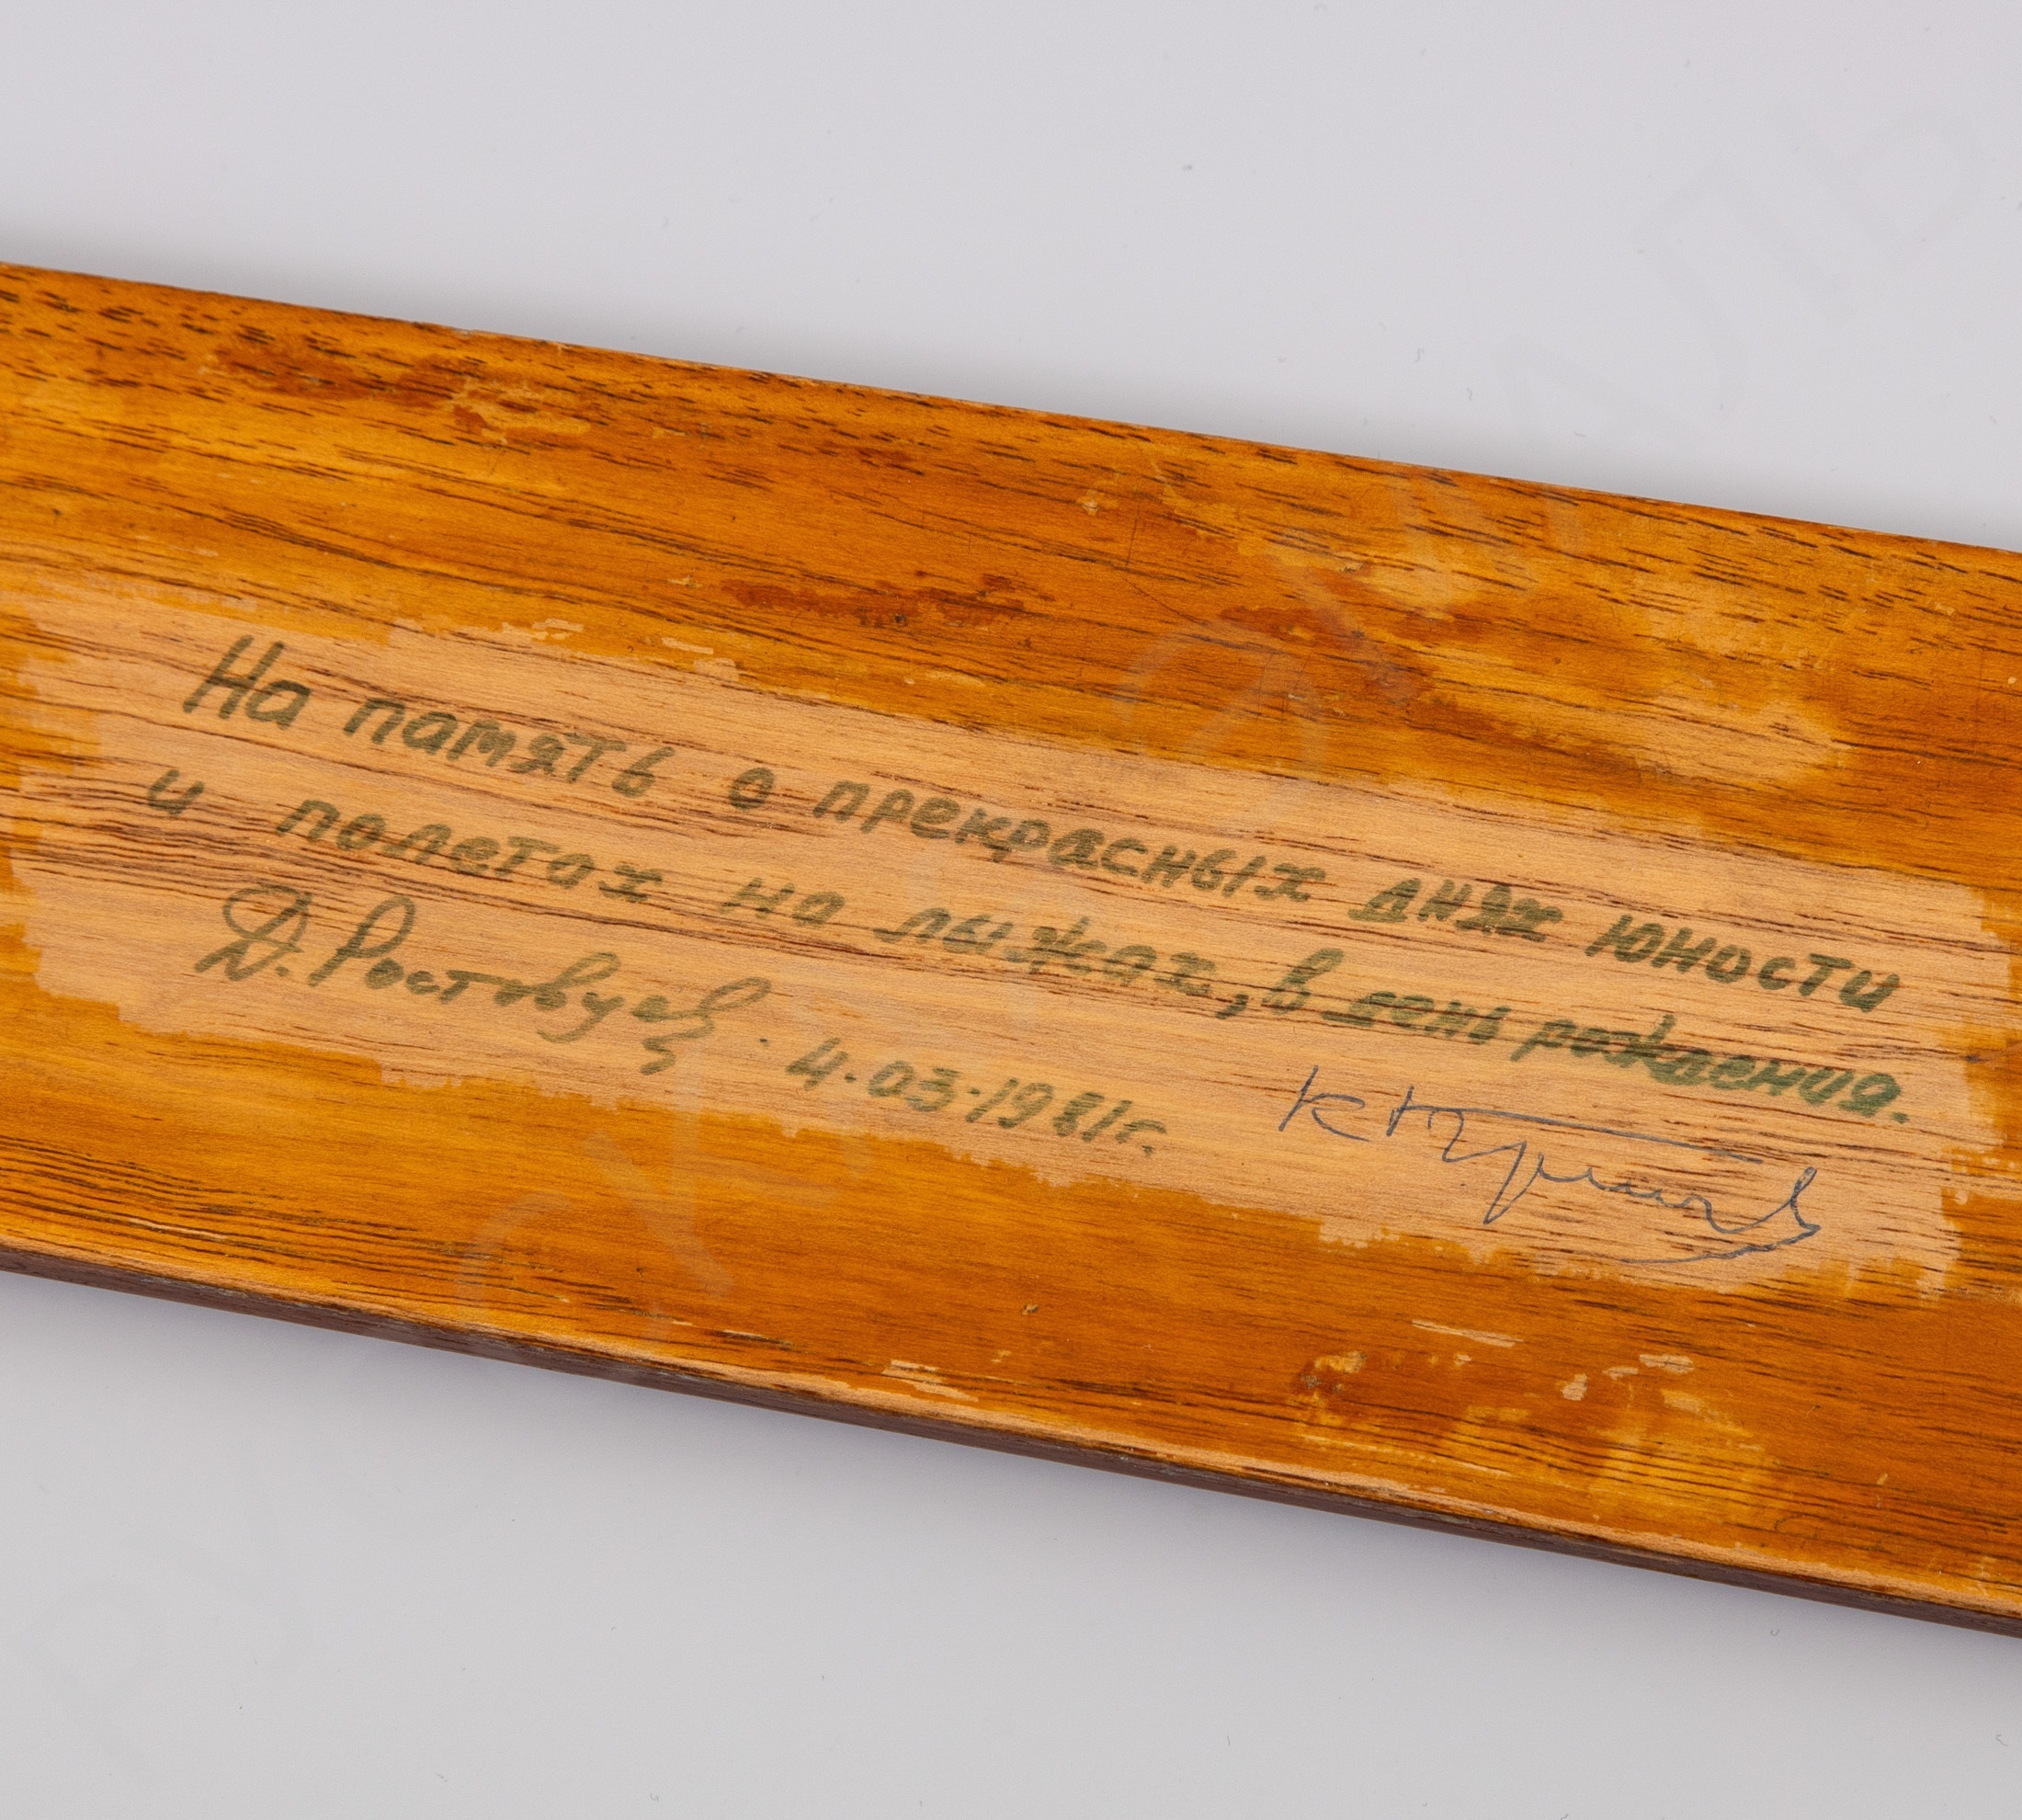 На память о прекрасных днях юности
и полетах на лыжах, в день рождения.
Д. Ростовцев. 4.03.1981г.